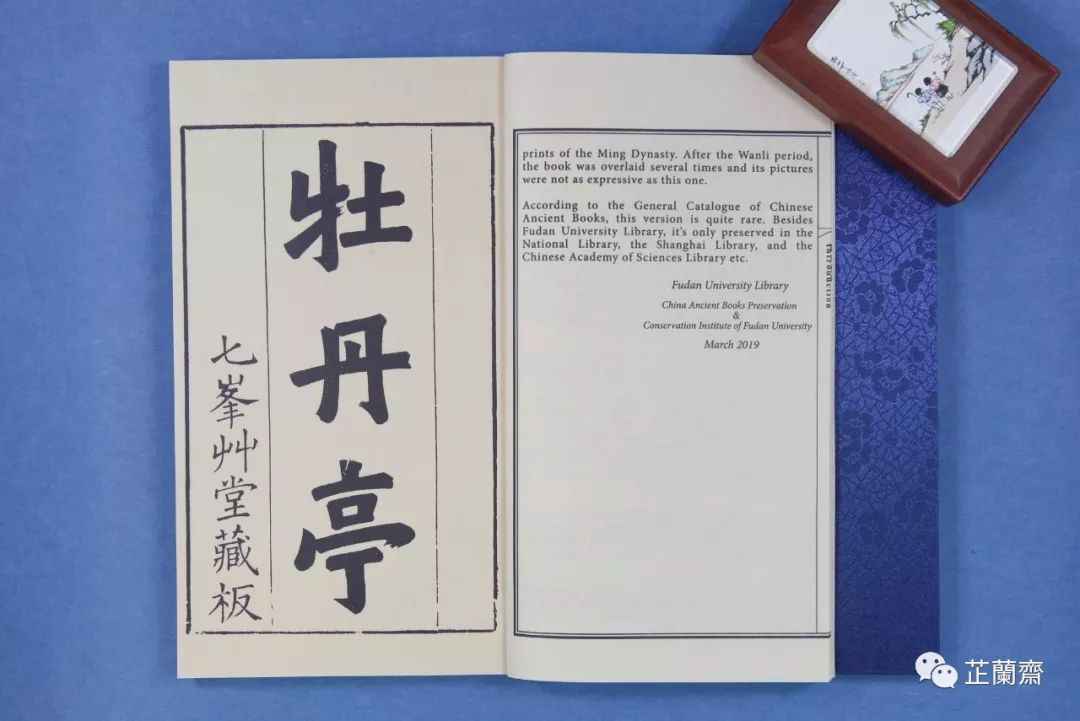 牡丹亭
七峯艸堂藏板
prints of the Ming Dynasty. After the Wanli period,
the book was overlaid several times and its pictures
were not as expressive as this one.
According to the General Catalogue of Chinese
Ancient Books, this version is quite rare. Besides
Fudan University Library, it's only preserved in the
National Library, the Shanghai Library, and the
Chinese Academy of Sciences Library etc.
Fudan University Library
China Ancient Books Preservation
&
Conservation Institute of Fudan University
March 2019
Introduction
芷蘭齋